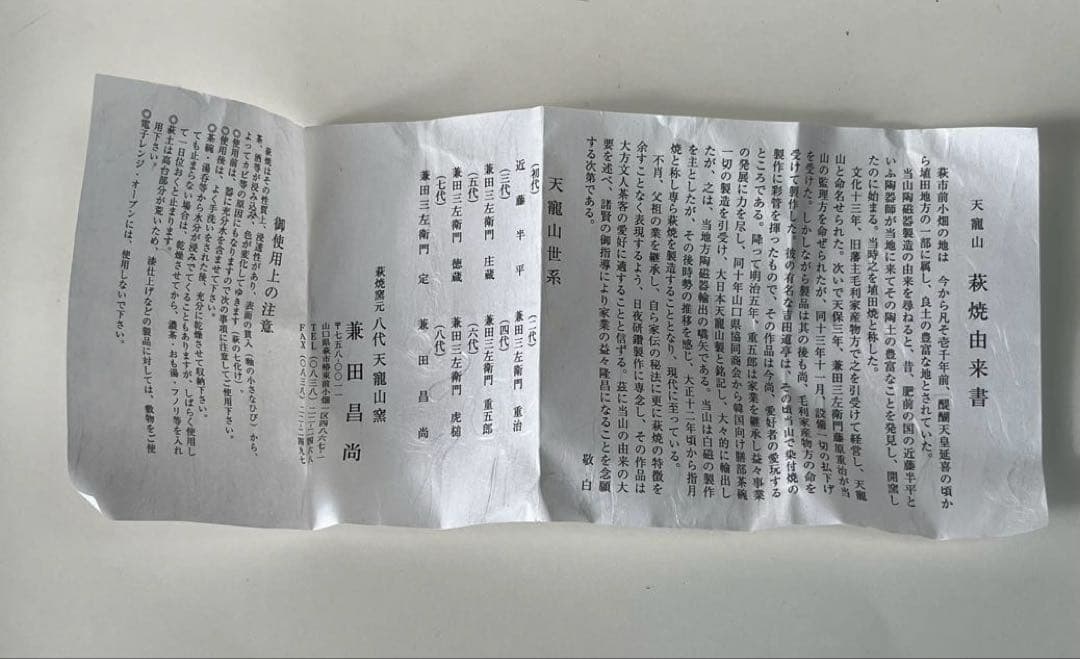 天龍山　萩焼由来書
萩市前小畑の地は　今から凡そ壱千年前、醍醐天皇延喜の頃か
ら埴田地方の一部に属し、良土の豊富な地とされていた。
当山陶磁器製造の由来を尋ねると、昔、肥前の国の近藤半平と
いふ陶器師が当地に来てその陶土の豊富なことを発見し、開窯し
たのに始まる。当時之を埴田焼と称した。
文化十三年、旧藩主毛利家産物方で之を引受けて経営し、天龍
山と命名せられた。次いで天保三年、兼田三左衛門藤原重治が当
山の監理方を命ぜられたが、同十三年十一月、設備一切の払下げ
を受けた。しかしながら製品は其の後も尚、毛利家産物方の命を
受けて製作した。彼の有名な吉田道亭は、その頃当山で染付焼の
製作に彩管を揮ったもので、その作品は今尚、愛好者の愛玩する
ところである。降って明治五年、重五郎は家業を継承し益々事業
の発展に力を尽し、同十年山口県協同商会から韓国向け膳部茶碗
一切の製造を引受け、大日本天龍山製と銘記し、大々的に輸出し
たが、之は、当地方陶磁器輸出の嚆矢である。当山は白磁の製作
を主としたが、その後時勢の推移を感じ、大正十二年頃から指月
焼と称し専ら萩焼を製造することとなり、現代に至っている。
不肖、父祖の業を継承し、自ら家伝の秘法に更に萩焼の特徴を
余すことなく表現するよう、日夜研鑽製作に専念し、その作品は
大方文人茶客の愛好に適することと信ずる。茲に当山の由来の大
要を述べ、諸賢の御指導により家業の益々隆昌になることを念願
する次第である。
敬白
天龍山世系
(初代)
近藤半平
(二代)
兼田三左衛門　重治
(三代)
兼田三左衛門　庄蔵
(四代)
兼田三左衛門　重五郎
(五代)
兼田三左衛門　徳蔵
(六代)
兼田三左衛門　虎槌
(七代)
兼田三左衛門　定
(八代)
兼田昌尚
萩焼窯元　八代　天龍山窯
兼田昌尚
〒七五八ー〇〇一一
山口県萩市椿東前小畑一区四八六七ー一
TEL(〇八三八)二二ー二四六八
FAX(〇八三八)二二ー二四九七
御使用上の注意
萩焼はその性質上、浸透性があり、表面の貫入(釉の小さなひび)から、
茶、酒等が浸み込み、色が変化してゆきます(萩の七化け)。
よってカビ等の原因にもなりますので次の事項に注意してご使用下さい。
◎使用前は、器に充分水を含ませて下さい。
◎使用後は、よく手洗いをされた後、充分に乾燥させて収納下さい。
◎茶碗・湯呑等から水分が浸みでてくることもありますが、しばらく使用し
ても止まらない場合は、乾燥させてから、濃茶・おも湯・フノリ等を入れ
て一日位おくと止まります。
◎萩土は高台部分が荒いため、漆仕上げなどの製品に対しては、敷物をご使
用下さい。
◎電子レンジ・オーブンには、使用しないで下さい。